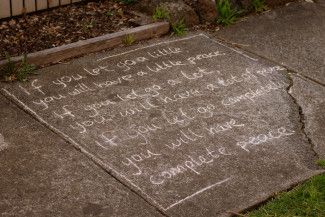 If you let go a little
you will have a little peace
If you let go a lot
you will have a lot of peace
If you let go completely
you will have
complete peace